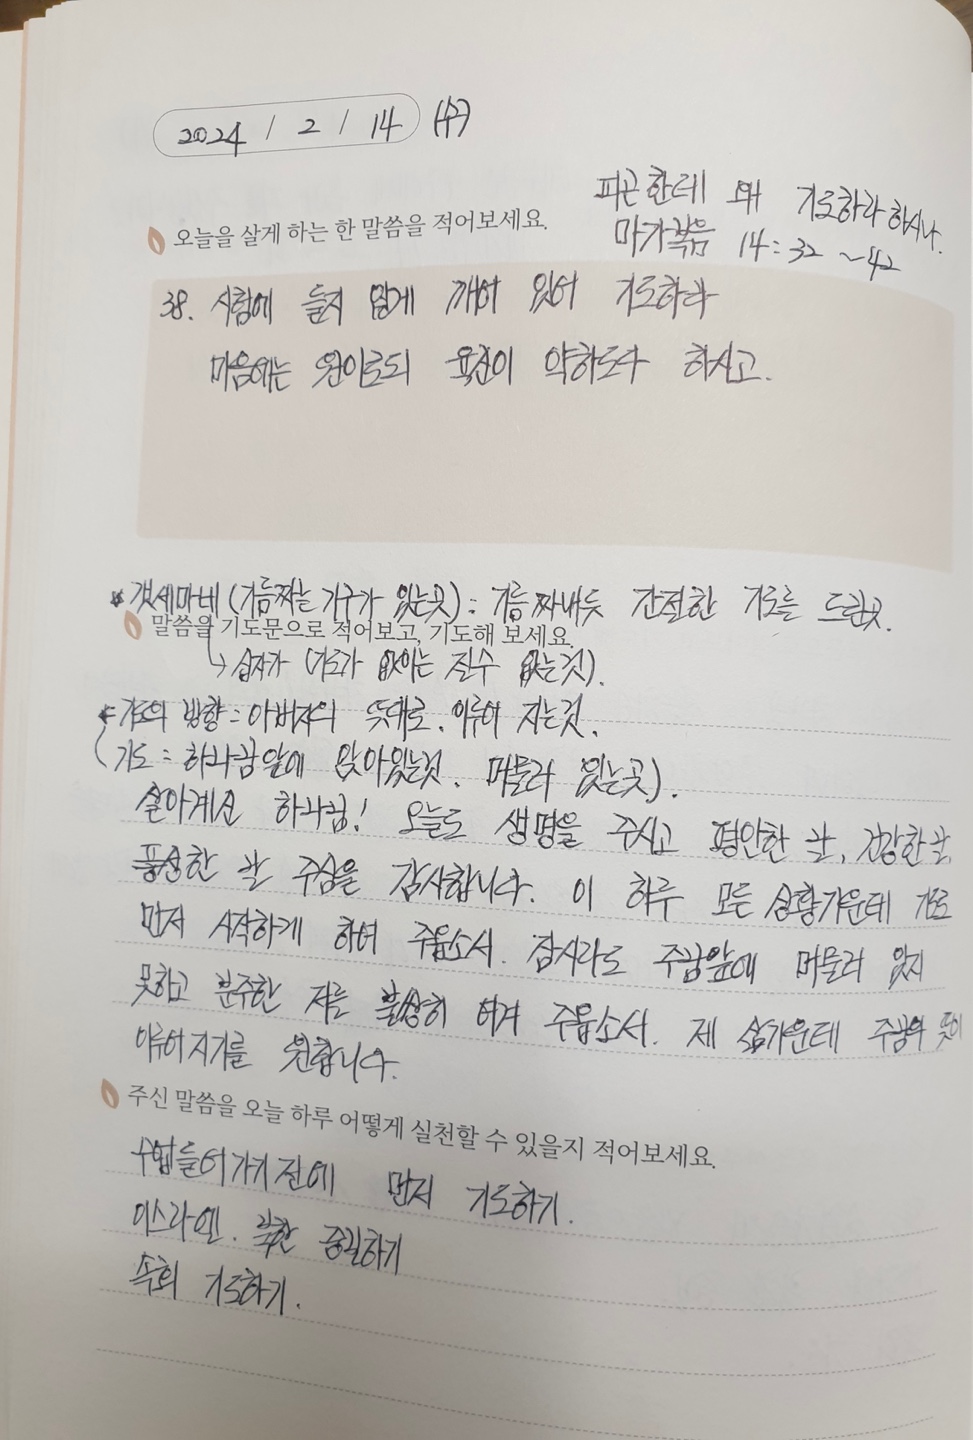 2024 / 2 / 14 (수)
피곤한데 왜 기도하라 하시나.
마가복음 14:32 ~42
오늘을 살게 하는 한 말씀을 적어보세요.
38. 시험에 들지 않게 깨어 있어 기도하라
마음에는 원이로되 육신이 약하도다 하시고.
* 겟세마네 (기름짜는 기구가 있는곳) : 기름 짜내듯 간절한 기도를 드린곳.
말씀을 기도문으로 적어보고, 기도해 보세요.
↳ 십자가 (기도가 없이는 질수 없는것).
* 기도의 방향 : 아버지의 뜻대로. 이루어 지는것.
(기도 : 하나님 앞에 앉아있는것. 머물러 있는곳).
살아계신 하나님! 오늘도 생명을 주시고 평안한 날, 건강한 날,
풍성한 날 주심을 감사합니다. 이 하루 모든 상황가운데 기도
먼저 시작하게 하여 주옵소서. 잠시라도 주님앞에 머물러 있지
못하고 분주한 저를 불쌍히 여겨 주옵소서. 제 삶가운데 주님의 뜻이
이루어지기를 원합니다.
주신 말씀을 오늘 하루 어떻게 실천할 수 있을지 적어보세요.
수업들어가기 전에 먼저 기도하기.
이스라엘. 북한 중보하기
속회 기도하기.